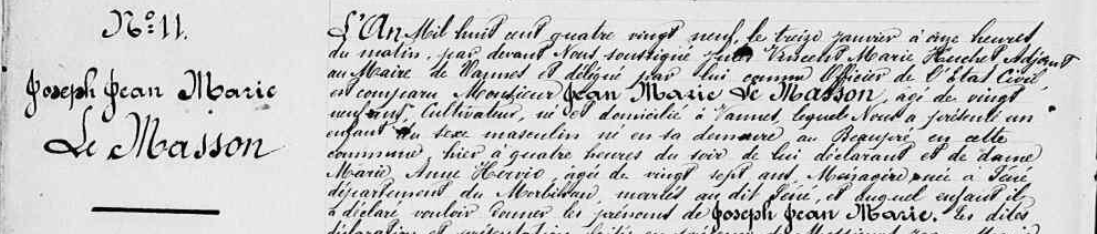 N° 11.
Joseph Jean Marie
Le Masson
L'An Mil huit cent quatre vingt neuf, le treize janvier à onze heures
du matin, par devant Nous soussigné Jules Vincent Marie Huchet Adjoint
au Maire de Vannes et délégué par lui comme Officier de l'Etat Civil,
est comparu Monsieur Jean Marie Le Masson, âgé de vingt
neuf ans, Cultivateur, né et domicilié à Vannes, lequel Nous a présenté un
enfant du sexe masculin né en sa demeure au Beaupré, en cette
commune, hier à quatre heures du soir de lui déclarant et de dame
Marie Anne Hervio, âgée de vingt sept ans, Ménagère, née à
département du Morbihan, mariés au dit et auquel enfant il
a déclaré vouloir donner les prénoms de Joseph Jean Marie. Les dites
déclaration et présentation faites en présence de Messieurs Jean Marie